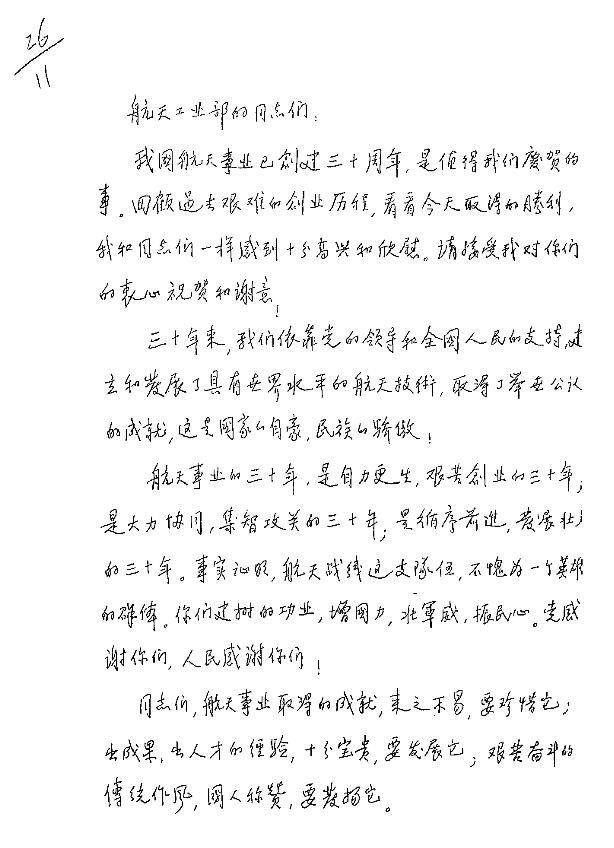 26/11
航天工业部的同志们：
我國航天事业已创建三十周年，是值得我们慶贺的
事。回顧過去艰难的创业历程，看看今天取得的勝利，
我和同志们一样感到十分高兴和欣慰。请接受我对你们
的衷心祝贺和谢意！
三十年来，我们依靠党的领导和全國人民的支持，建
立和发展了具有世界水平的航天技術，取得了举世公认
的成就，这是國家的自豪，民族的骄傲！
航天事业的三十年，是自力更生，艰苦创业的三十年；
是大力协同，集智攻关的三十年；是循序前进，發展壮大
的三十年。事实证明，航天战线这支隊伍，不愧为一个英雄
的群体。你们建树的功业，增國力，壮軍威，振民心。党感
谢你们，人民感谢你们！
同志们，航天事业取得的成就，来之不易，要珍惜它；
出成果，出人才的经验，十分宝贵，要发展它；艰苦奋斗的
傳统作风，國人称赞，要發扬它。